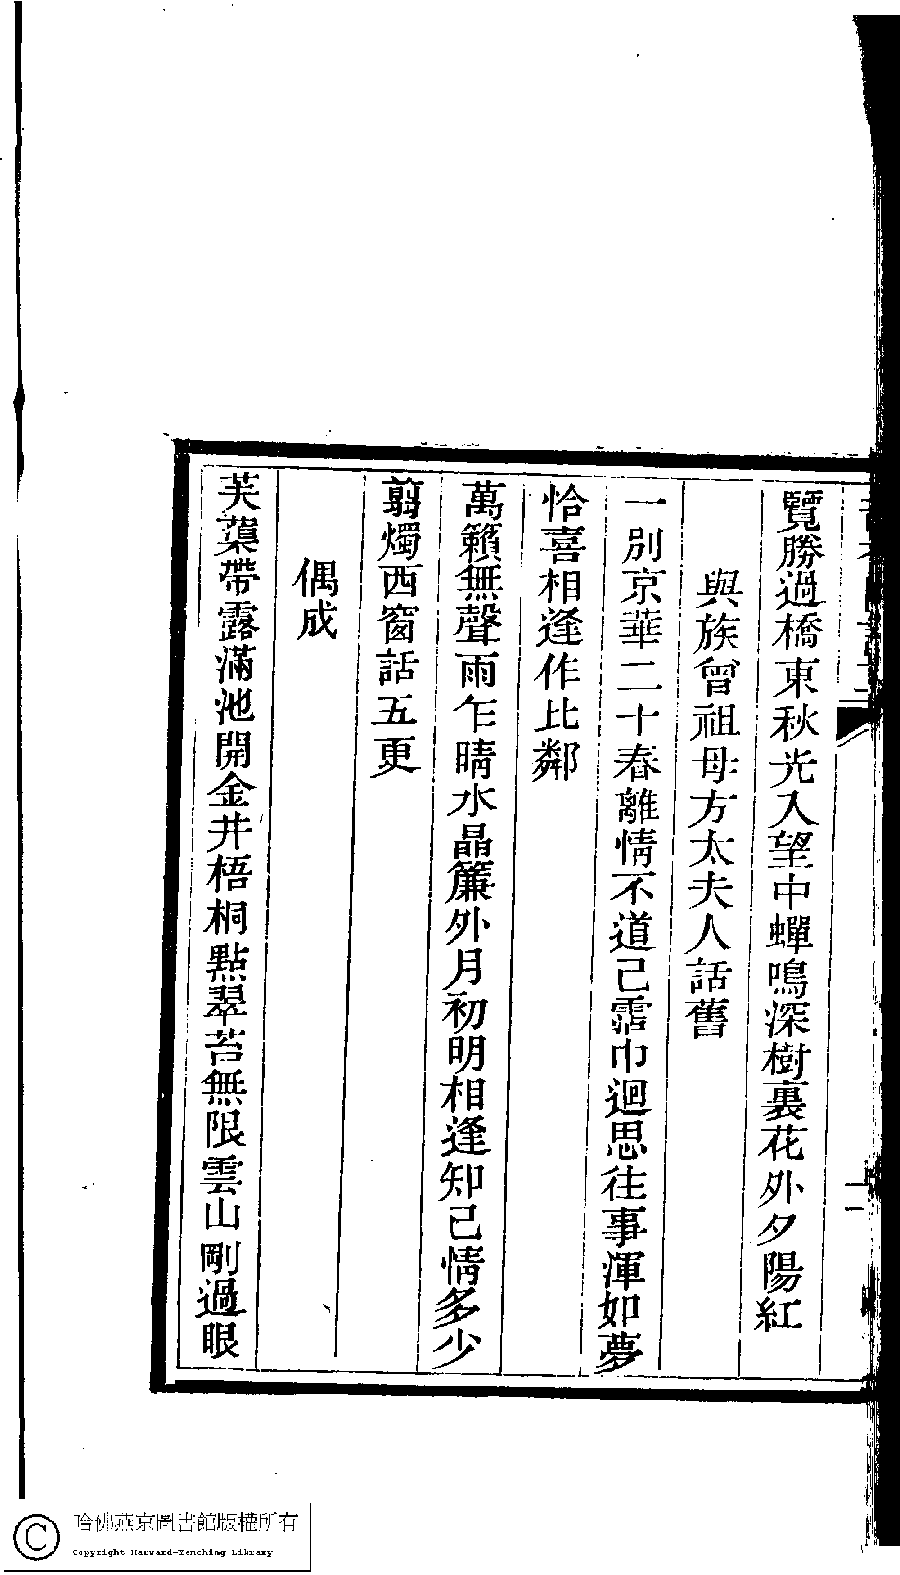 覽勝過橋東秋光入望中蟬鳴深樹裏花外夕陽紅
與族曾祖母方太夫人話舊
一別京華二十春離情不道已霑巾迴思往事渾如夢
恰喜相逢作比鄰
萬籟無聲雨乍晴水晶簾外月初明相逢知己情多少
翦燭西窗話五更
偶成
芙蕖帶露滿池開金井梧桐點翠苔無限雲山剛過眼
哈佛燕京圖書館版權所有
Copyright Harvard-Yenching Library